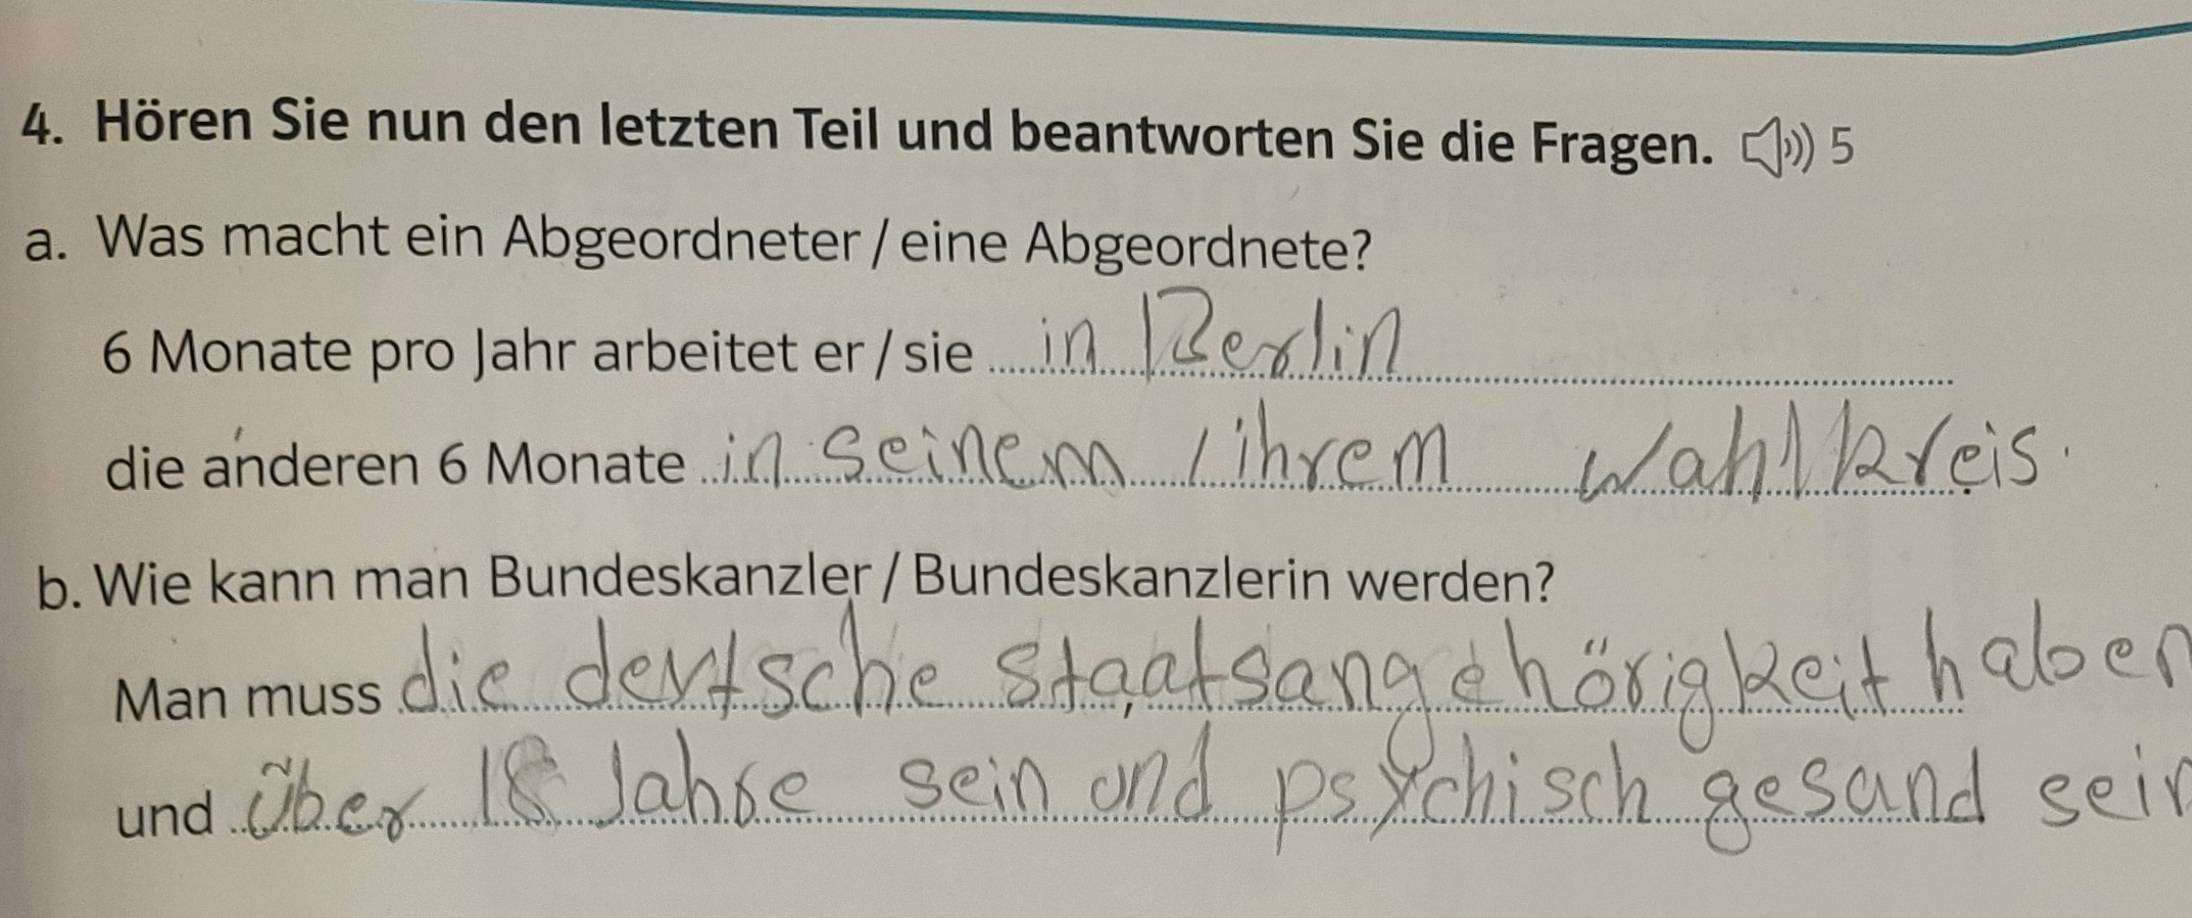 4. Hören Sie nun den letzten Teil und beantworten Sie die Fragen. 5
a. Was macht ein Abgeordneter / eine Abgeordnete?
6 Monate pro Jahr arbeitet er / sie in Berlin
die anderen 6 Monate in seinem / ihrem Wahlkreis.
b. Wie kann man Bundeskanzler / Bundeskanzlerin werden?
Man muss die deutsche Staatsangehörigkeit haben
und über 18 Jahre sein und psychisch gesand sein